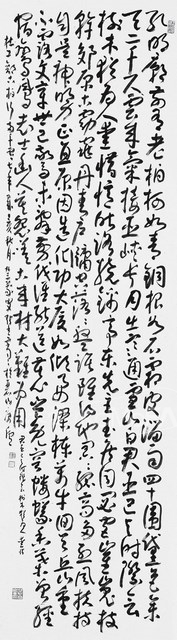 孔明廟前有老柏柯如青銅根如石霜皮溜雨四十圍黛色參
天二千尺雲來氣接巫峽長月出寒通雪山白君臣已與時際會
樹木猶為人愛惜憶昨路繞錦亭東先主武侯同閟宮崔嵬枝
幹郊原古窈窕丹青戶牖空落落盤踞雖得地冥冥孤高多烈風扶持
自是神明力正直原因造化功大廈如傾要梁棟萬牛回首丘山重
不露文章世已驚未辭翦伐誰能送苦心豈免容螻蟻香葉終經
宿鸞鳳志士幽人莫怨嗟古來材大難為用
杜工部古柏行